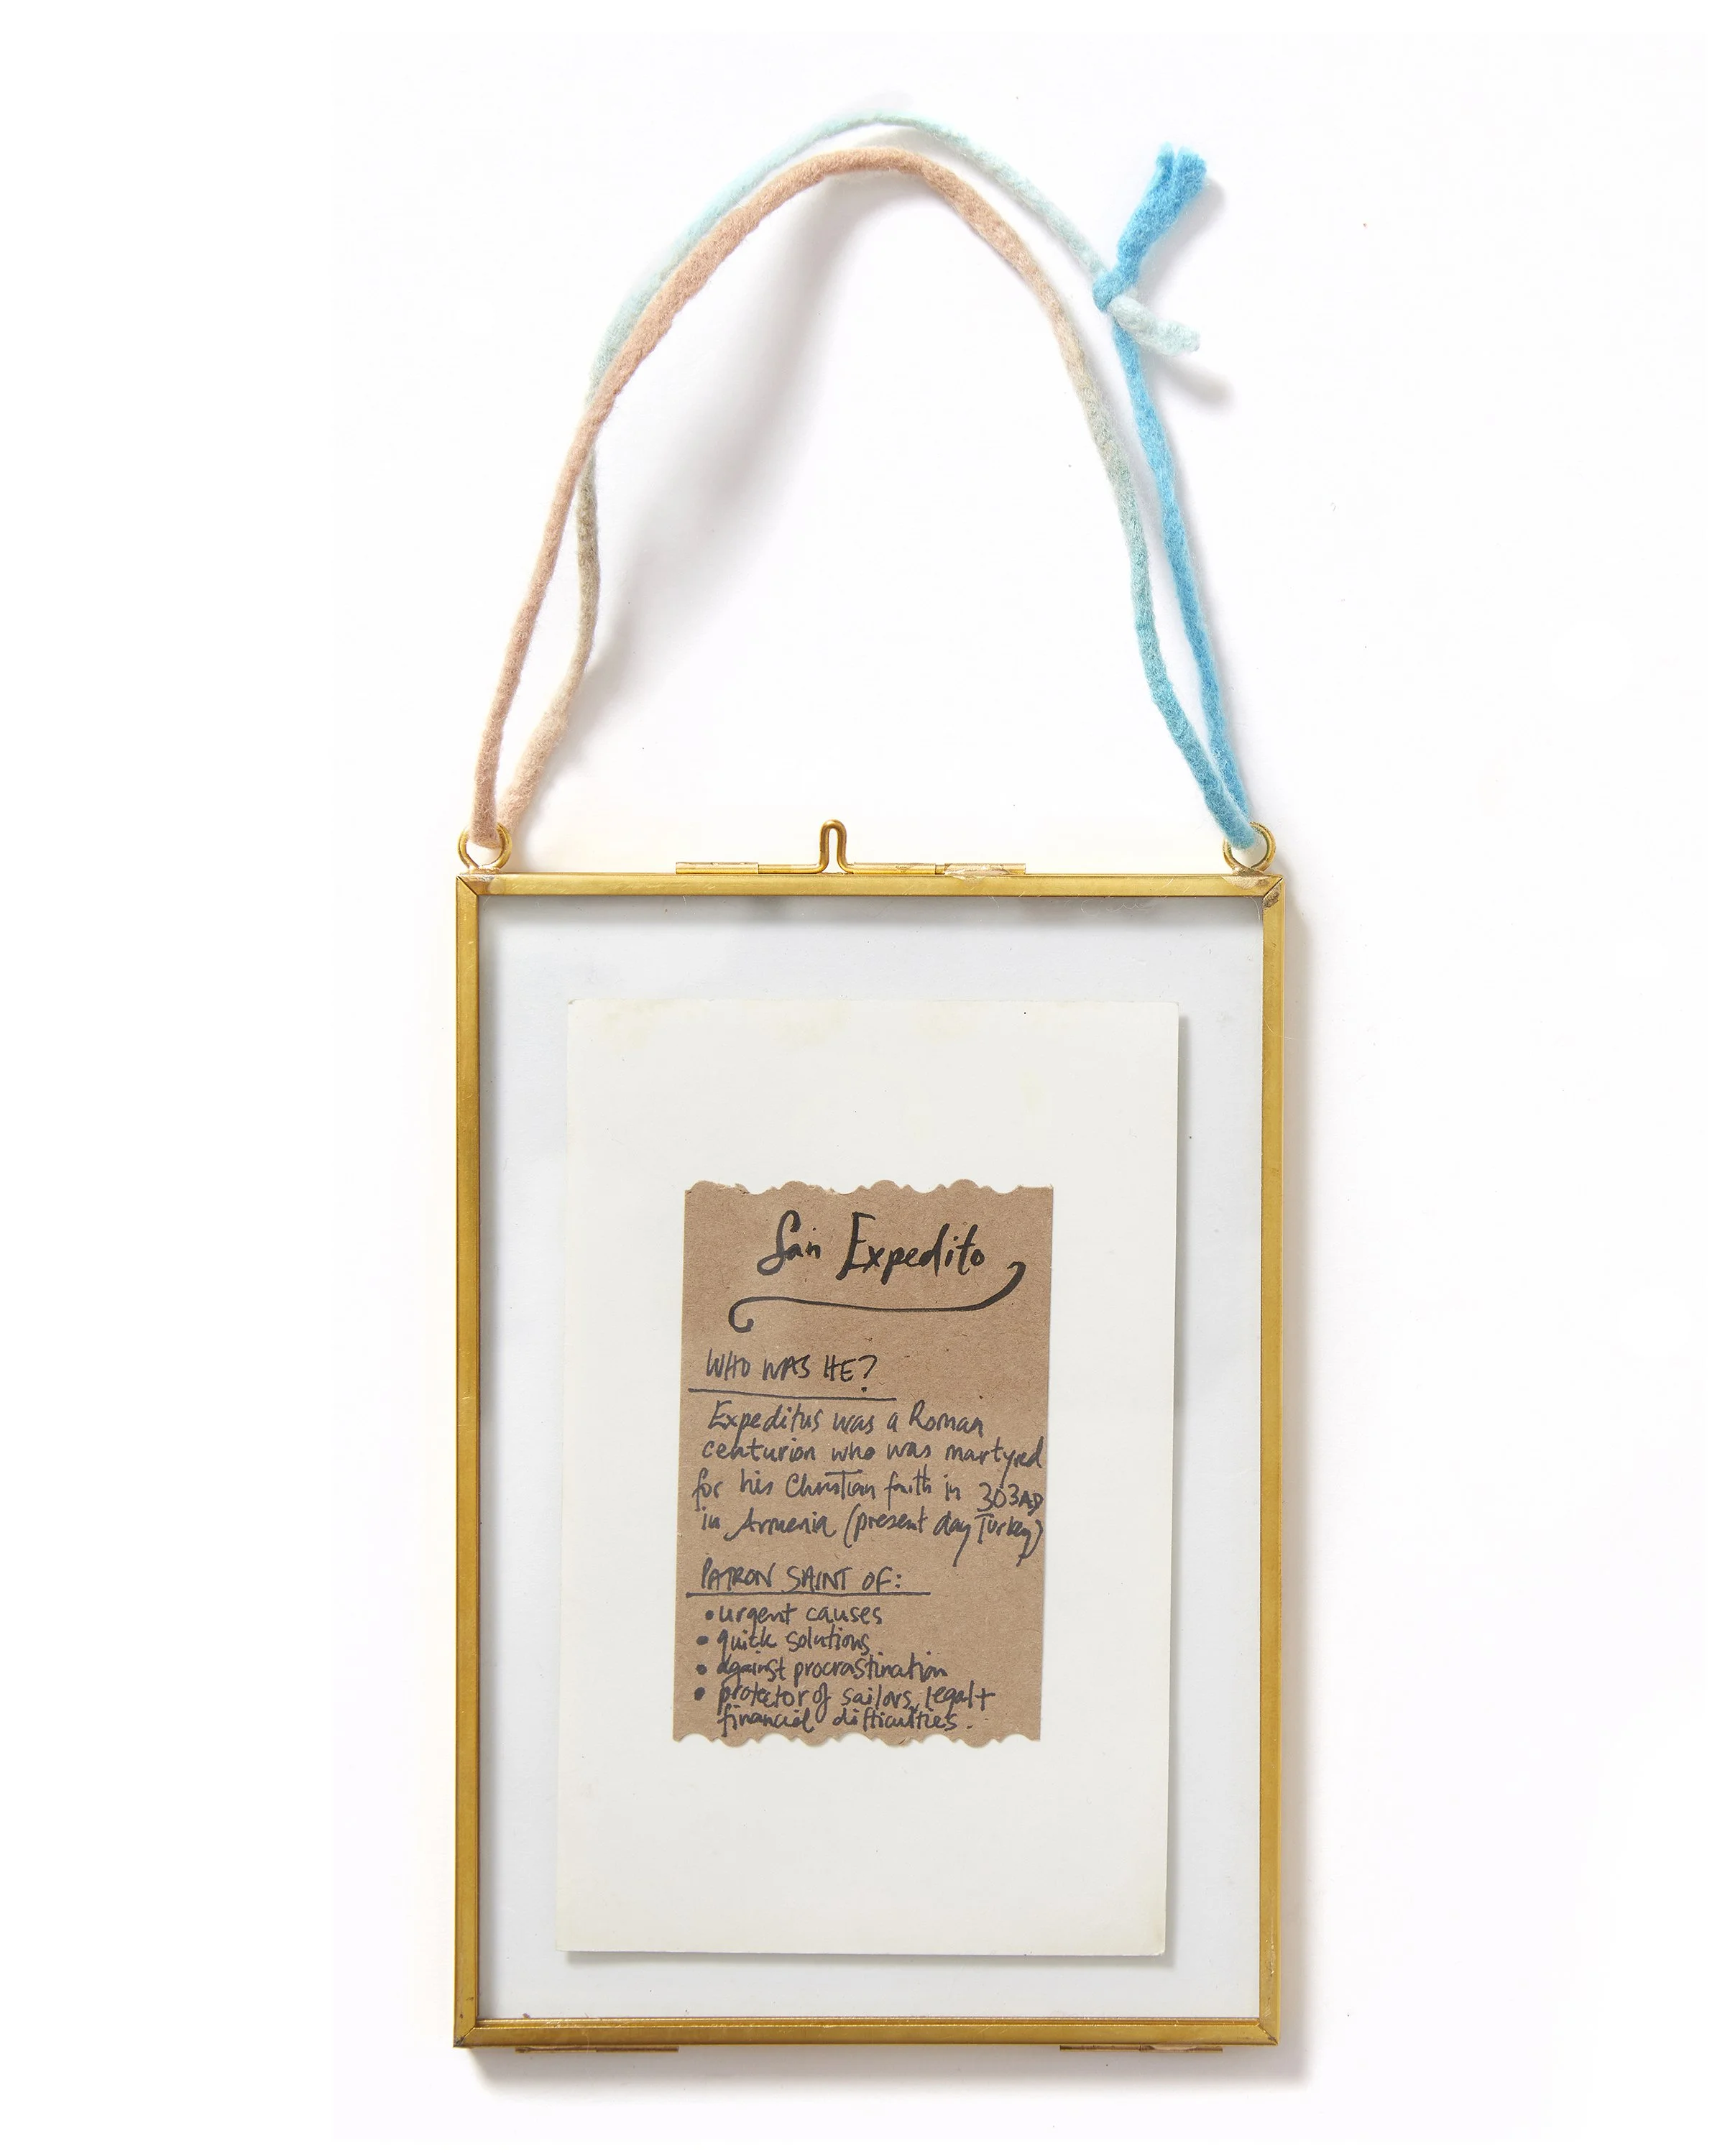 San Expedito
WHO WAS HE?
Expeditus was a Roman
centurion who was martyred
for his Christian faith in 303AD
in Armenia (present day Turkey)
PATRON SAINT OF:
• urgent causes
• quick solutions
• against procrastination
• protector of sailors, legal +
financial difficulties.